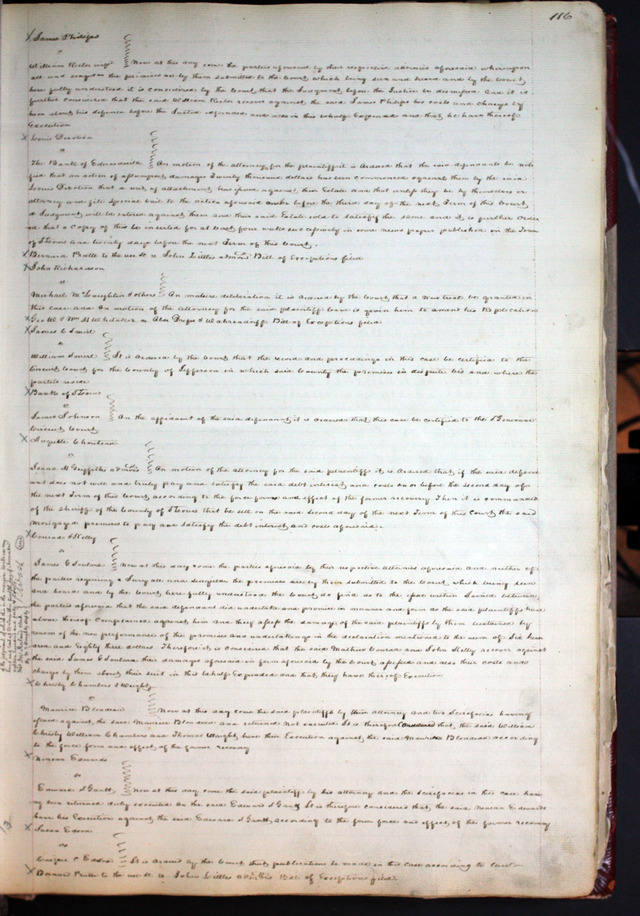 116
James Phelps
William
Now at this day come the parties aforesaid by their respective attornies aforesaid whereupon
all and singular the premises are by them submitted to the Court which being seen and heard and by the Court
here fully understood it is considered by the Court that the Judgment before the Justice be dismissed and it is
further considered that the said William recover against the said James Phelps his costs and charges by
him about his defence before the Justice expended and also in this behalf Expended and that he have thereof
Execution
Louis
The Bank of Edwardsville On motion of the attorney for the plaintiff it is ordered that the said defendants be noti
fied that an action of assumpsit damages Twenty thousand dollars has been commenced against them by the said
Louis that a writ of attachment has issued against their Estate and that unless they be by themselves or
attorney and file special bail to the action aforesaid on or before the third day of the next Term of this Court
a Judgment will be entered against them and their said Estate sold to satisfy the same and it is further order
ed that a copy of this be inserted for at least four weeks successively in some news paper published in the Town
of St Louis and twenty days before the next Term of this Court.
Bernard Pratte to the use &c vs John Lilles Bill of Exceptions filed
John Richardson
Michael McLaughlin & others On mature deliberation it is ordered by the Court that a New trial be granted in
this case and on motion of the attorney for the said plaintiff leave is given him to amend his Replication
Geo W & Wm H Whitaker vs & Bill of Exceptions filed
James C
William It is ordered by the Court that the record and proceedings in this case be certified to the
Circuit Court for the County of Jefferson in which said County the premises in dispute lie and where the
parties reside
Bank of St Louis
James Johnson On the affidavit of the said defendant it is ordered that this case be certified to the
Circuit Court
Auguste Chouteau
Isaac H Griffith's On motion of the attorney for the said plaintiff it is ordered that if the said defend
ant does not well and truly pay and satisfy the said debt interest and costs on or before the second day of
the next Term of this Court according to the force form and effect of the former recovery Then it is commanded
of the sheriff of the County of St Louis that he sell on the said second day of the next Term of this Court the said
Mortgaged premises to pay and satisfy the debt interest and costs aforesaid.
Conrad & Kelly
James C Now at this day come the parties aforesaid by their respective attornies aforesaid and neither of
the parties requiring a Jury all and singular the premises are by them submitted to the Court which being seen
and heard and by the Court here fully understood the Court do find as to the issue within Joined between
the parties aforesaid that the said defendant did undertake and promise in manner and form as the said plaintiffs have
above thereof complained against him and they assess the damages of the said plaintiffs by them sustained by
reason of the non performance of the promises and undertakings in the declaration mentioned to the sum of Six hun
dred and Eighty three dollars Therefore it is considered that the said Mathew Conrad and John Kelly recover against
the said James C their damages aforesaid in form aforesaid by the Court assessed and also their costs and
charges by them about their suit in this behalf Expended and that they have thereof Execution
Christy Chambers & Wright
Maurice Blondeau Now at this day come the said plaintiffs by their attorney and two Scirefacias having
issued against the said Maurice Blondeau and returned not executed It is therefore considered that the said William
Christy William Chambers and Thomas Wright have their Execution against the said Maurice Blondeau according
to the force form and effect of the former recovery
Ninian Edwards
Edward S Gantt Now at this day come the said plaintiff by his attorney and the Scirefacias in this case hav
ing been returned duly executed on the said Edward S Gantt It is therefore considered that the said Ninian Edwards
have his Execution against the said Edward S Gantt according to the form force and effect of the former recovery
Susan Easom
C Easom It is ordered by the Court that publication be made in this case according to Law
Bernard Pratte to the use &c vs John Lilles Bill of Exceptions filed